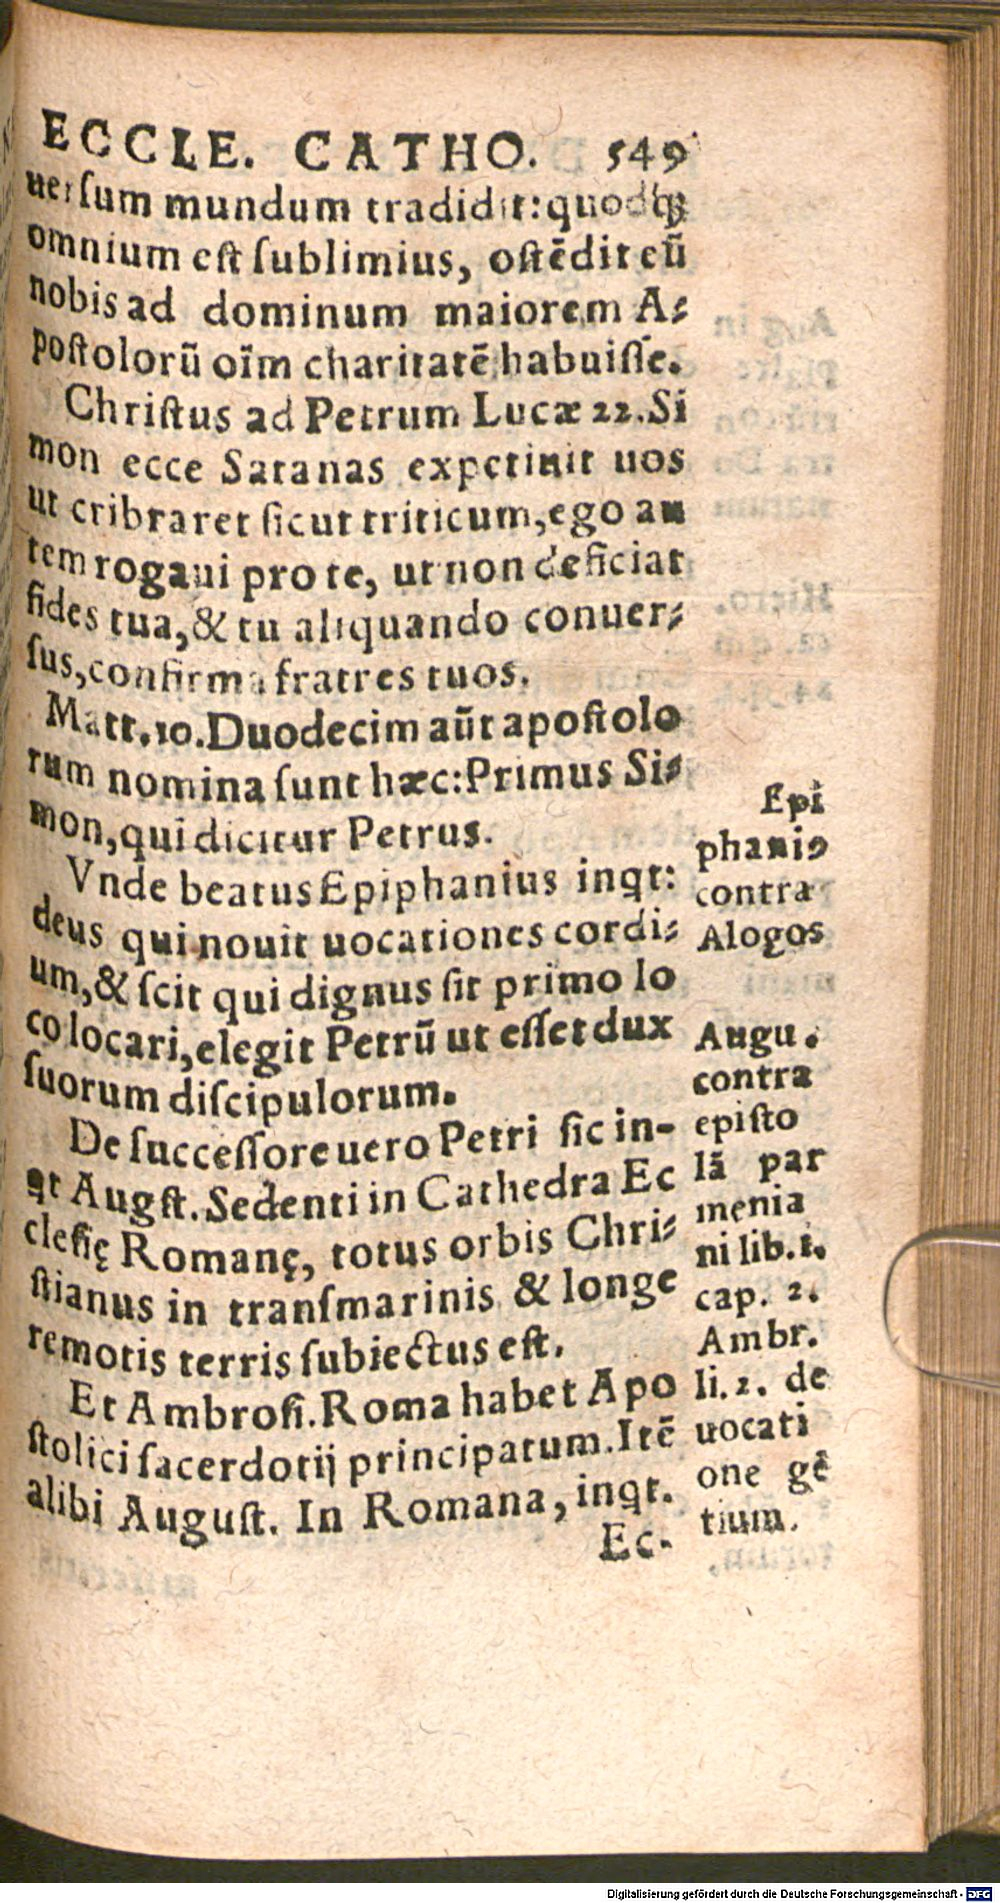 ECCLE. CATHO. 549
uerſum mundum tradidit: quodq́ꝫ
omnium eſt ſublimius, oſtẽdit eũ
nobis ad dominum maiorem A⸗
poſtolorũ oĩm charitatẽ habuiſſe.
Chriſtus ad Petrum Lucæ 22. Si
mon ecce Satanas expetiuit uos
ut cribraret ſicut triticum, ego au
tem rogaui pro te, ut non deficiat
fides tua, & tu aliquando conuer⸗
ſus, confirma fratres tuos.
Matt. 10. Duodecim aũt apoſtolo
rum nomina ſunt hæc: Primus Si⸗
mon, qui dicitur Petrus.
Vnde beatus Epiphanius inqt:
deus qui nouit uocationes cordi⸗
um, & ſcit qui dignus ſit primo lo
co locari, elegit Petrũ ut eſſet dux
ſuorum diſcipulorum.
De ſucceſſore uero Petri ſic in-
qt Augſt. Sedenti in Cathedra Ec
cleſię Romanę, totus orbis Chri⸗
ſtianus in tranſmarinis & longe
remotis terris ſubiectus eſt.
Et Ambroſi. Roma habet Apo
ſtolici ſacerdotij principatum. Itẽ
alibi Auguſt. In Romana, inqt.
Ec-
Epi
phanio
contra
Alogos
Augu.
contra
epiſto
lã par
menia
ni lib. 1.
cap. 2.
Ambr.
li. 2. de
uocati
one gẽ
tium.
Digitalisierung gefördert durch die Deutsche Forschungsgemeinschaft - DFG